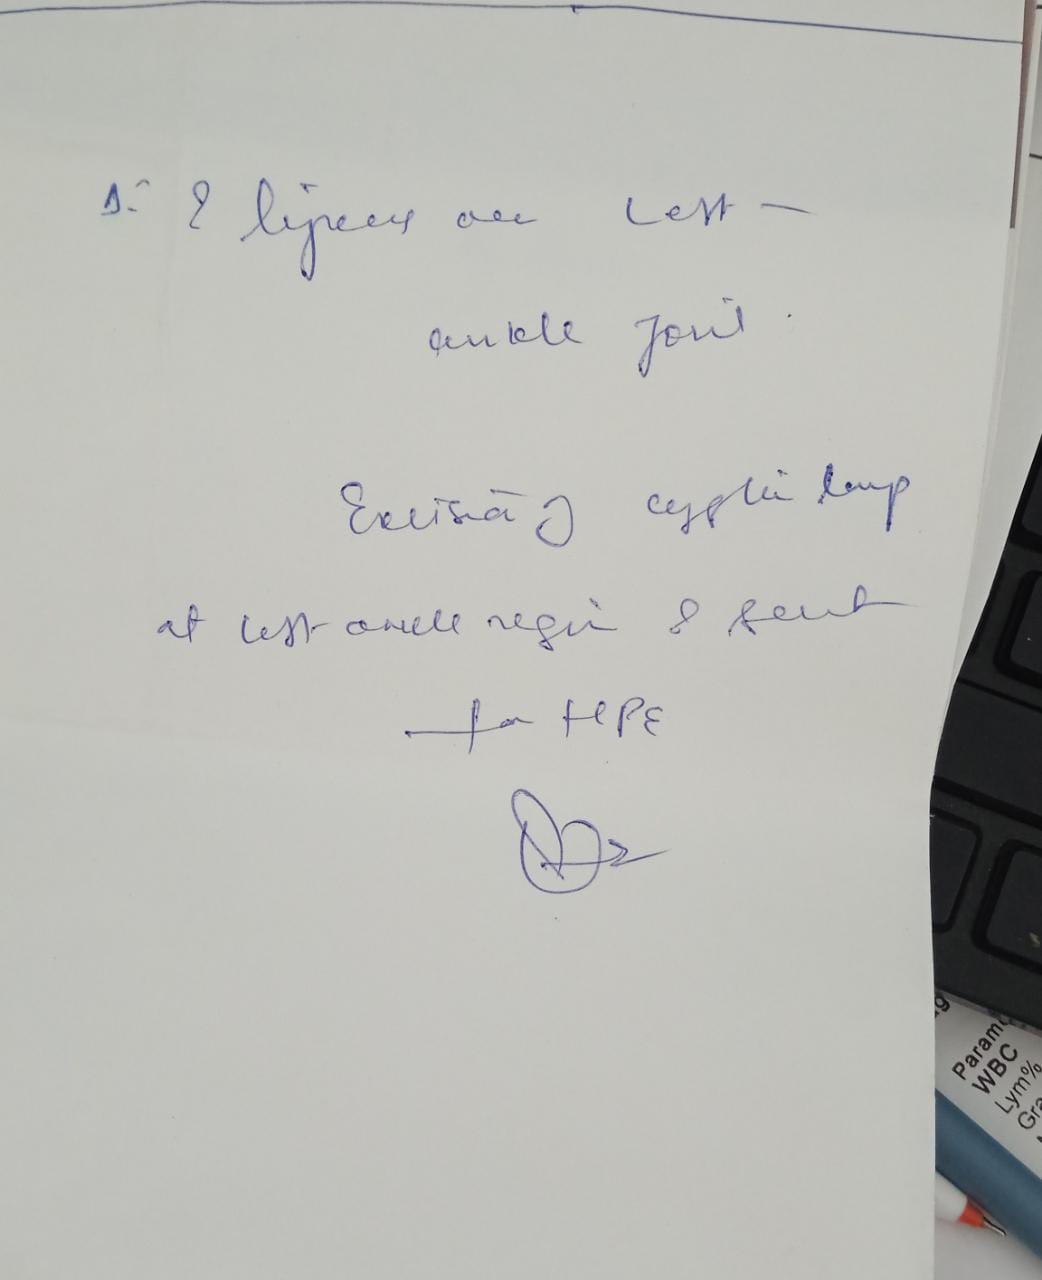 Δ:- ? lipoma over Left
ankle joint.
Excision of cystic lump
at left ankle region & sent
for HPE
Param
WBC
Lym%
Gra